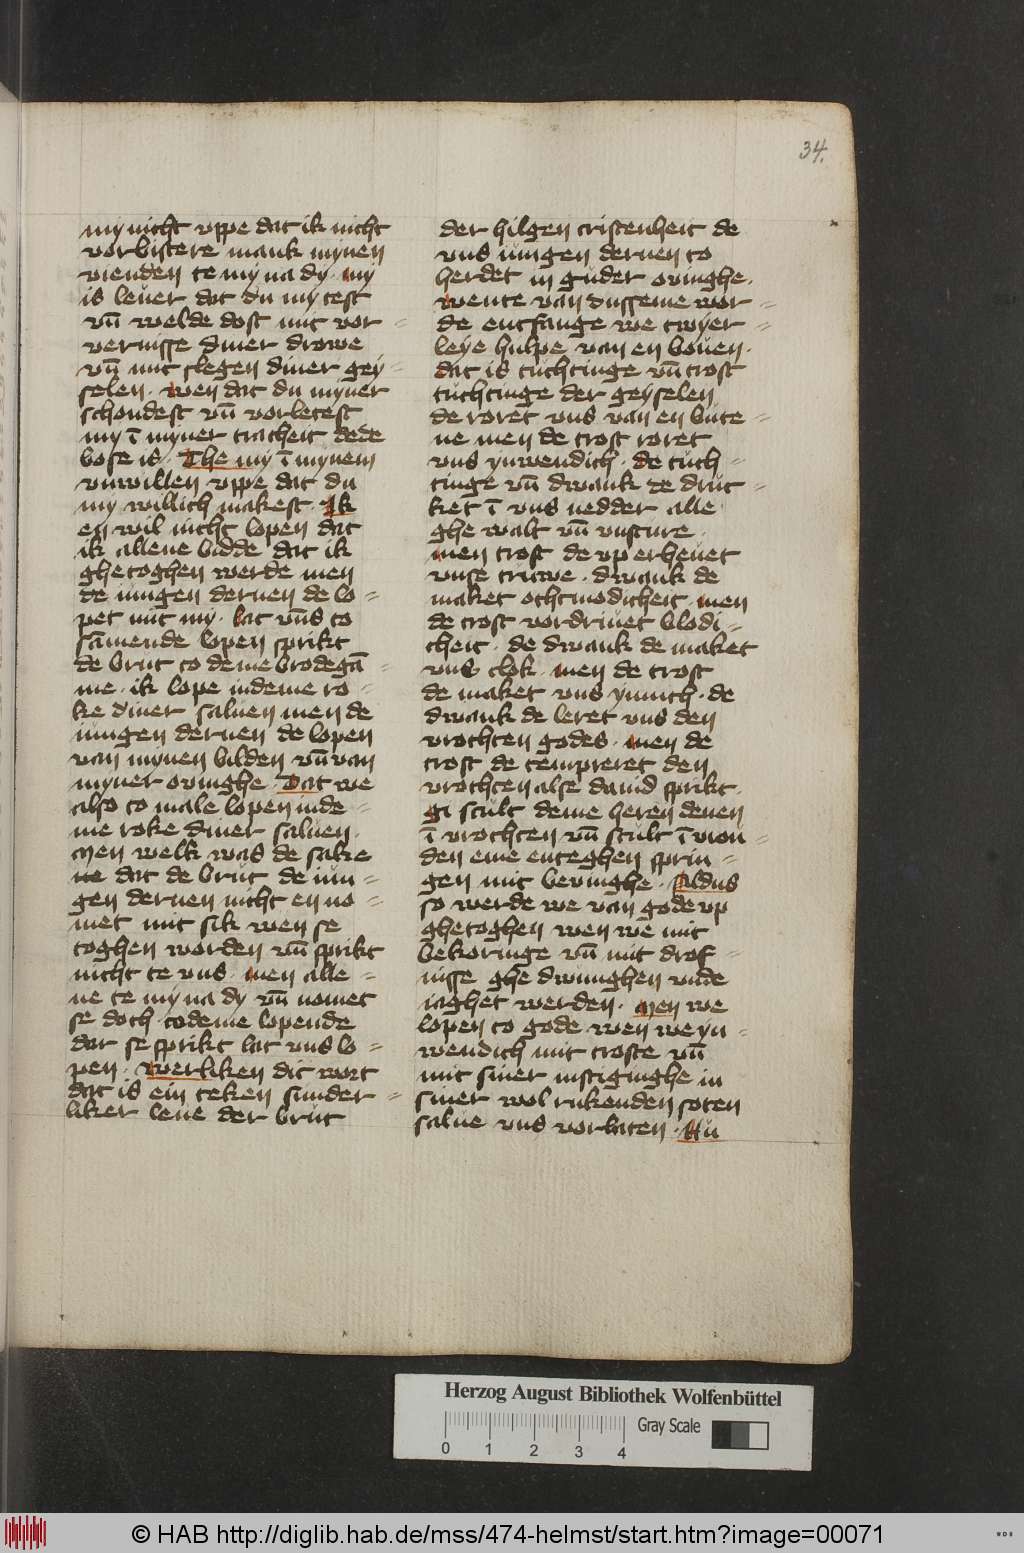 34.
my nicht vppe dat ik nicht
vorbistere mank mynen
vienden te my na dy · my
is leuer dat du my test
vn̄ welde dost mit vor=
vernisse diner drowe
vn̄ mit slegen diner gey=
selen · wen dat du myner
schondest vn̄ vorletest
my ī myner tracheit dede
bose is · The my ī mynem
vnwillen vppe dat du
my willich makest · Ik
en wil nicht lopen dat
ik allene bidde dat ik
ghetoghen werde men
de iungen dernen de lo=
pet mit my · lat vn̄s to
sāmende lopen sprikt
de brut to deme brodegā=
me · ik lope indeme ro=
ke diner saluen men de
iungen dernen de lopen
van mynen bilden vn̄ van
myner ouinghe · Dat we
also to male lopen inde=
me roke diner saluen ·
Men welk was de sake
ne dat de brut de iun=
gen dernen nicht en no=
met mit sik wen se
toghen worden vn̄ sprikt
nicht te vns · men alle=
ne te my na dy vn̄ nomet
se doch todeme lopende
dar se sprikt lat vns lo=
pen · Werliken dit wort
dat is ein teken sunder=
liker leue der brut
der hilgen cristenheit de
vns iungen dernen to
herdet in guder ouinghe ·
wente van dusseme wor=
de entfange we twyer=
leye hulpe van en bouen ·
dat is tuchtinge vn̄ trost
tuchtinge der geyselen
de roret vns van en bute=
ne men de trost roret
vns ynwendich · de tuch=
tinge vn̄ dwank de druc=
ket ī vns nedder alle
ghe walt vn̄ vnsture
men trost de vp erheuet
vnse truwe · dwank de
maket othmodicheit · men
de trost vordriuet blodi=
cheit · de dwank de maket
vns clok · men de trost
de maket vns ynnich · de
dwank de leret vns den
vrochten godes · men de
trost de tempreret den
vrochten alse dauid sprikt ·
gi scult deme heren denen
ī vrochten vn̄ scult ī vrou=
den eme enteghen sprin=
gen mit beuinghe · Aldus
so werde we van gode vp
ghetoghen wen we mit
bekoringe vn̄ mit drof=
nisse ghe dwunghen vnde
iaghet werden · Men we
lopen to gode wen we yn=
wendich mit troste vn̄
mit siner instiginghe in
siner wol rukenden soten
salue vns vorlaten · Nu
Herzog August Bibliothek Wolfenbüttel
0 1 2 3 4 Gray Scale
© HAB http://diglib.hab.de/mss/474-helmst/start.htm?image=00071